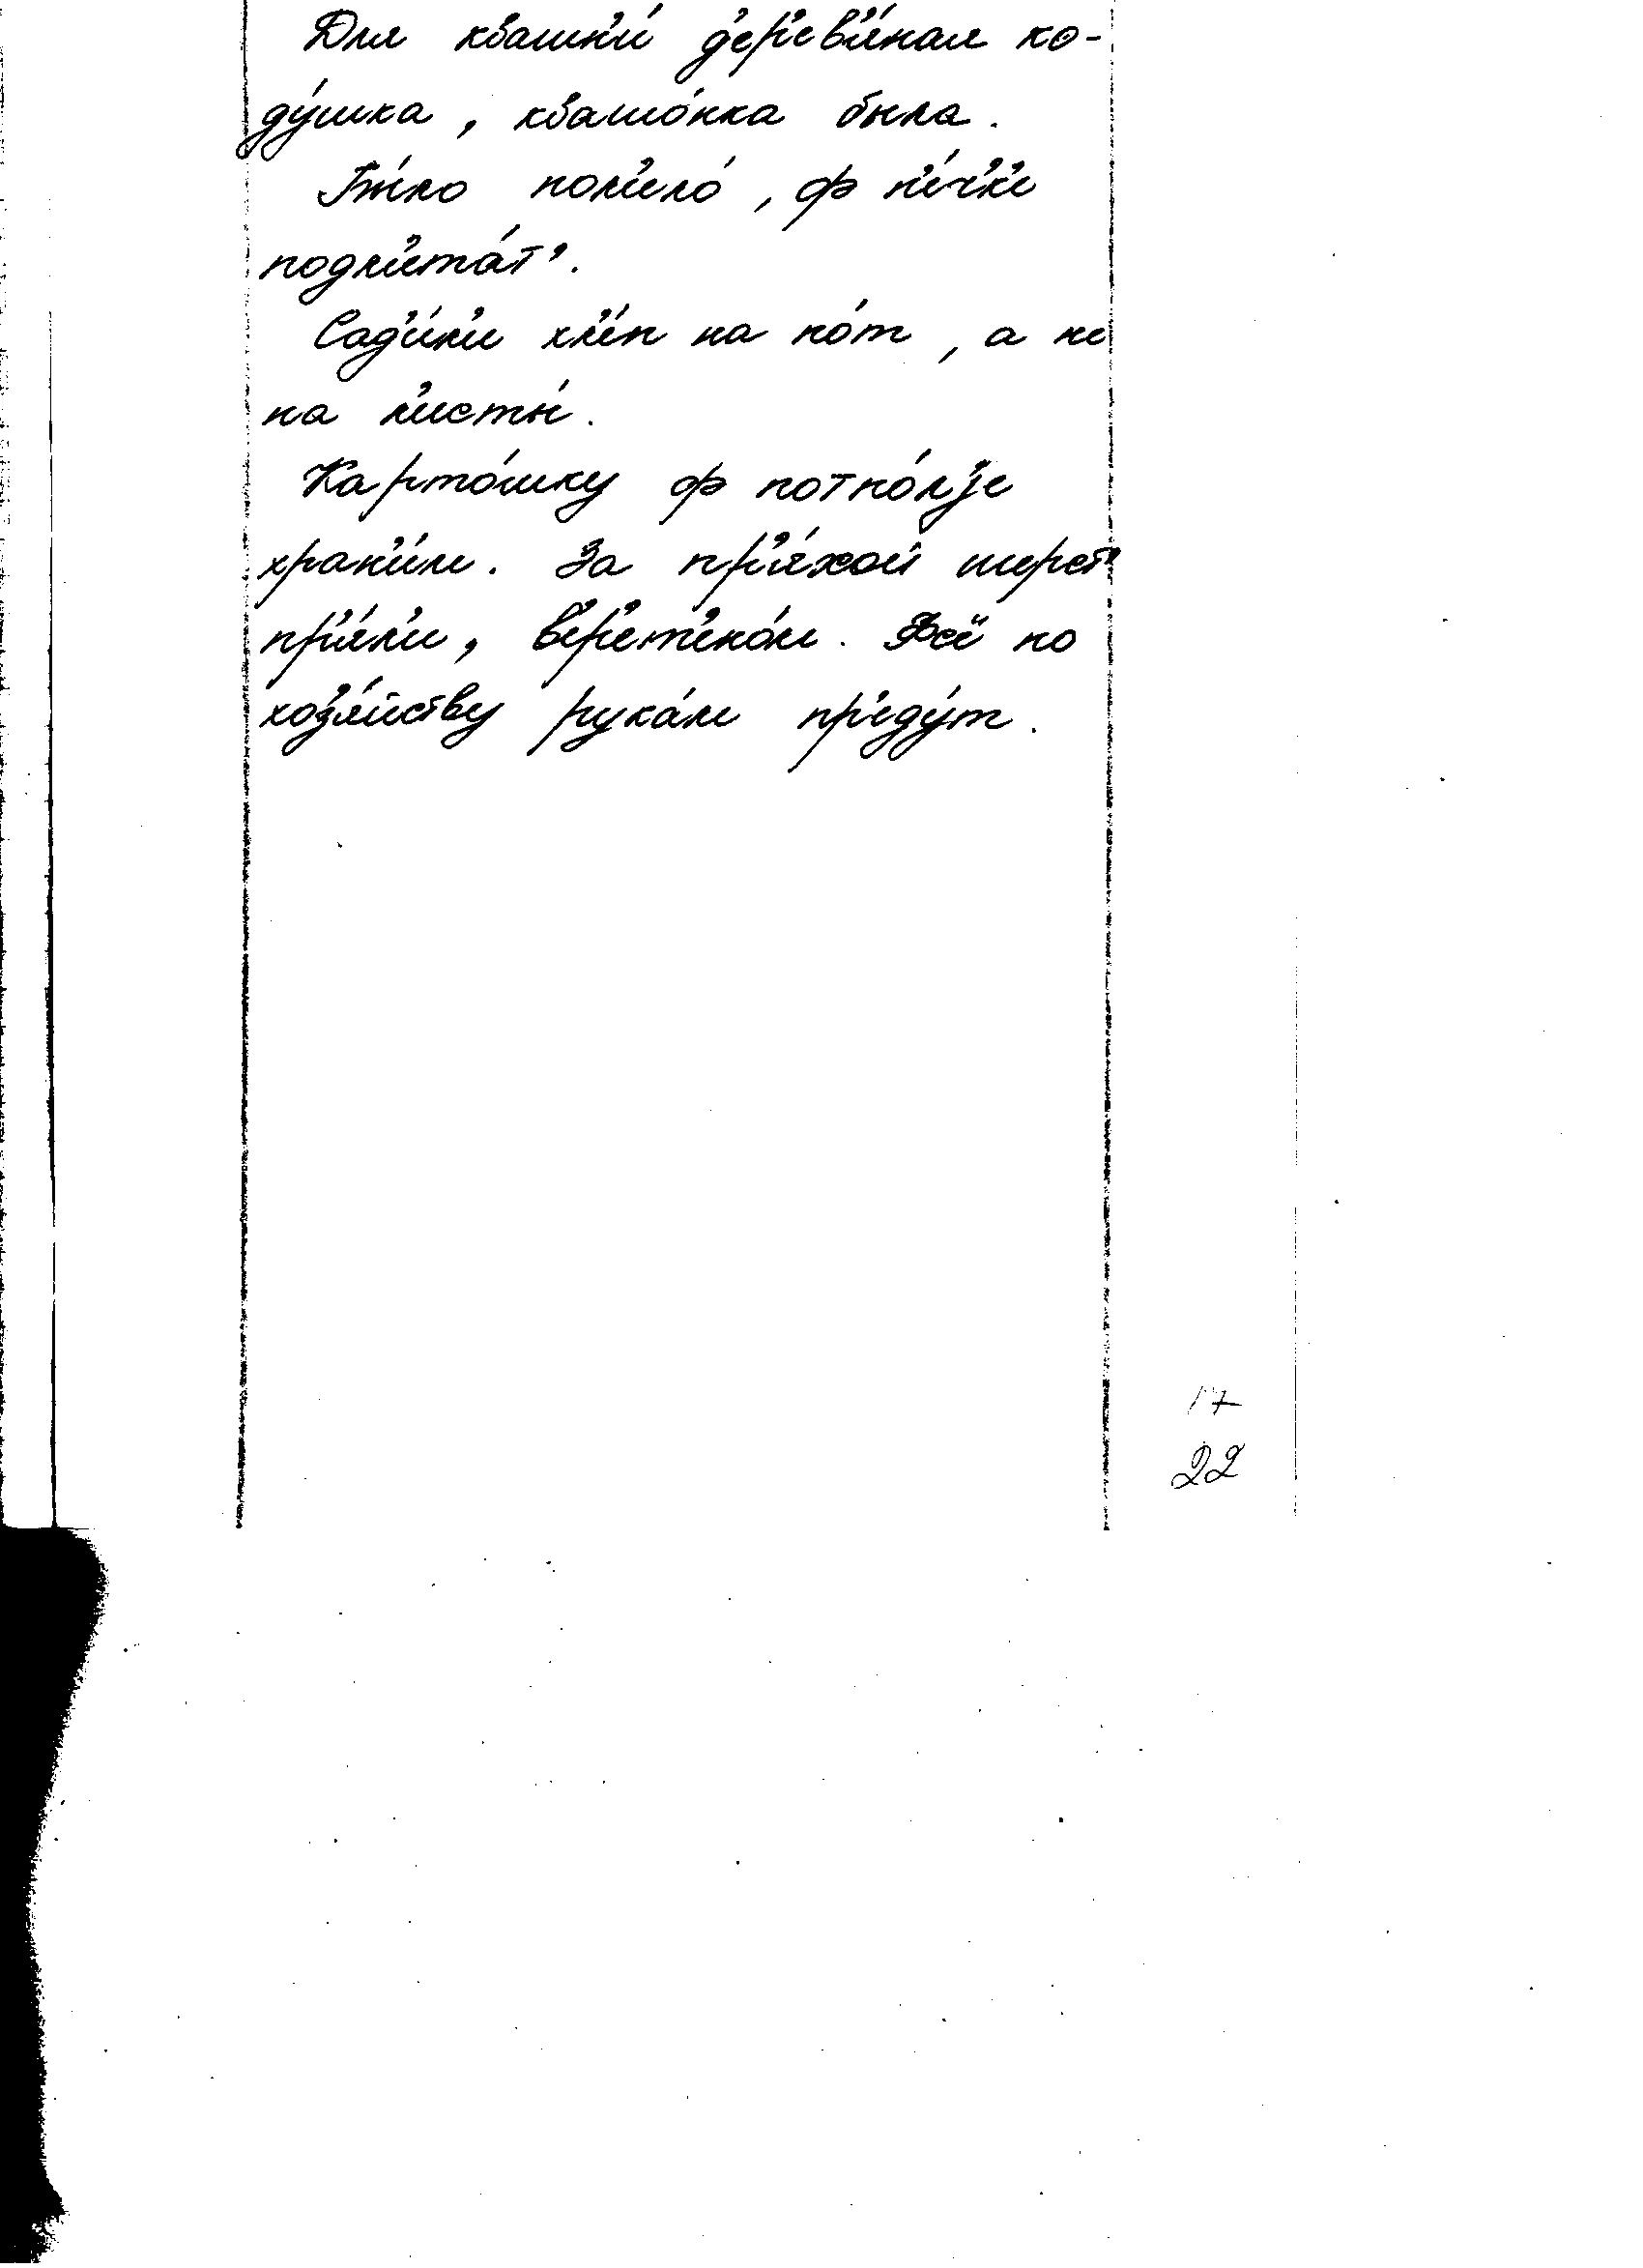 Для квашн'и́ д'ер'ев'я́ная ко-
ду́шка, квашо́нка была.
Бы́ло пом'ело́, ф п'е́ч'к'е
подм'ета́т'.
Сад'и́л'и хл'е́п на по́т, а не
на л'исты́.
Карто́шку ф потпо́лje
хран'и́м. За пр'я́хой шерст'
пр'я́л'и, в'ер'ет'ено́м. Фсё по
хоз'я́йству рука́м пр'еду́т.
17
22